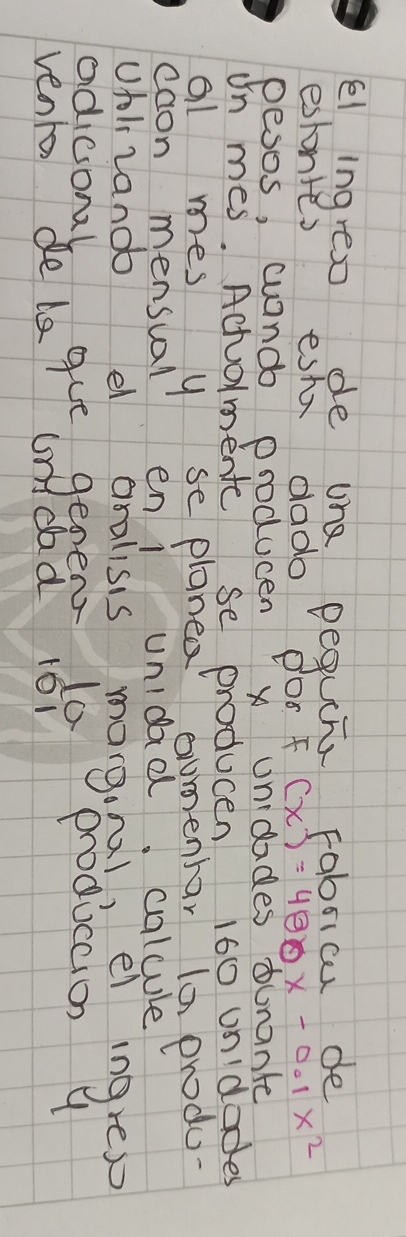 El ingreso de una pequeña Fabrica de
estantes esta dado por F (x) = 400x - 0.1x²
pesos, cuando producen x unidades durante
un mes. Actualmente se producen 160 unidades
al mes y se planea aumentar la produ-
caon mensual en 1 unidad. calcule
utilizando el analisis marginal, el ingreso
adicional que genera la producción y
venta de la unidad 161